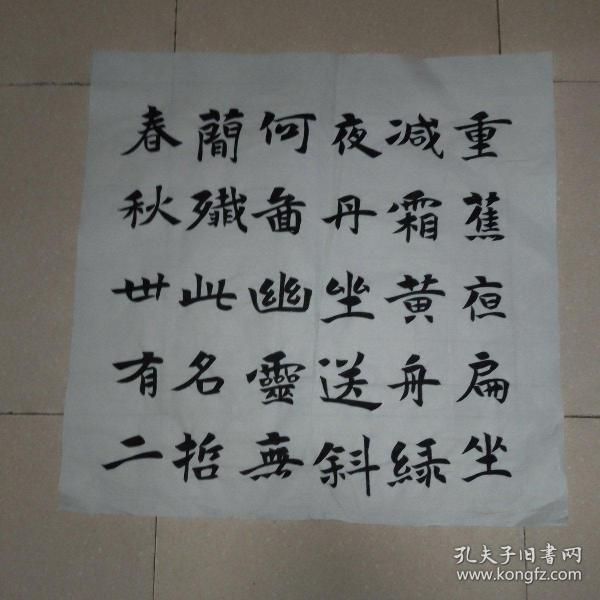 重蕉亱扁坐
减霜黄舟緑
夜丹坐送斜
何啚幽靈無
蕳殲此名哲
春秋卋有二
孔夫子旧書网
www.kongfz.com